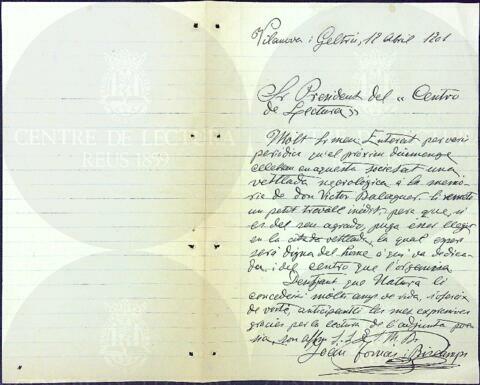 Vilanova i Geltrú, 18 Abril 1901
Sr President del "Centro
de Lectura"
Molt Sr meu: Enterat per varis
periodichs qu'el próxim diumenge
celebran en aquesta societat una
vetllada necrológica á la memó-
ria de don Victor Balaguer, li remeto
un petit travall inédit, pera que, si
es del seu agrado, puga esser llegit
en la citada vetllada, la qual espero
será digna del home a qui va dedica-
da, i del centro que l'organisa.
Desitjant que Natura li
concedeixi molts anys de vida, i
de vosté, anticipantli les mes expressives
gracies per la lectura de l'adjunta poe-
sia, son affm. S. S.
Joan
CENTRE DE LECTURA
REUS 1859